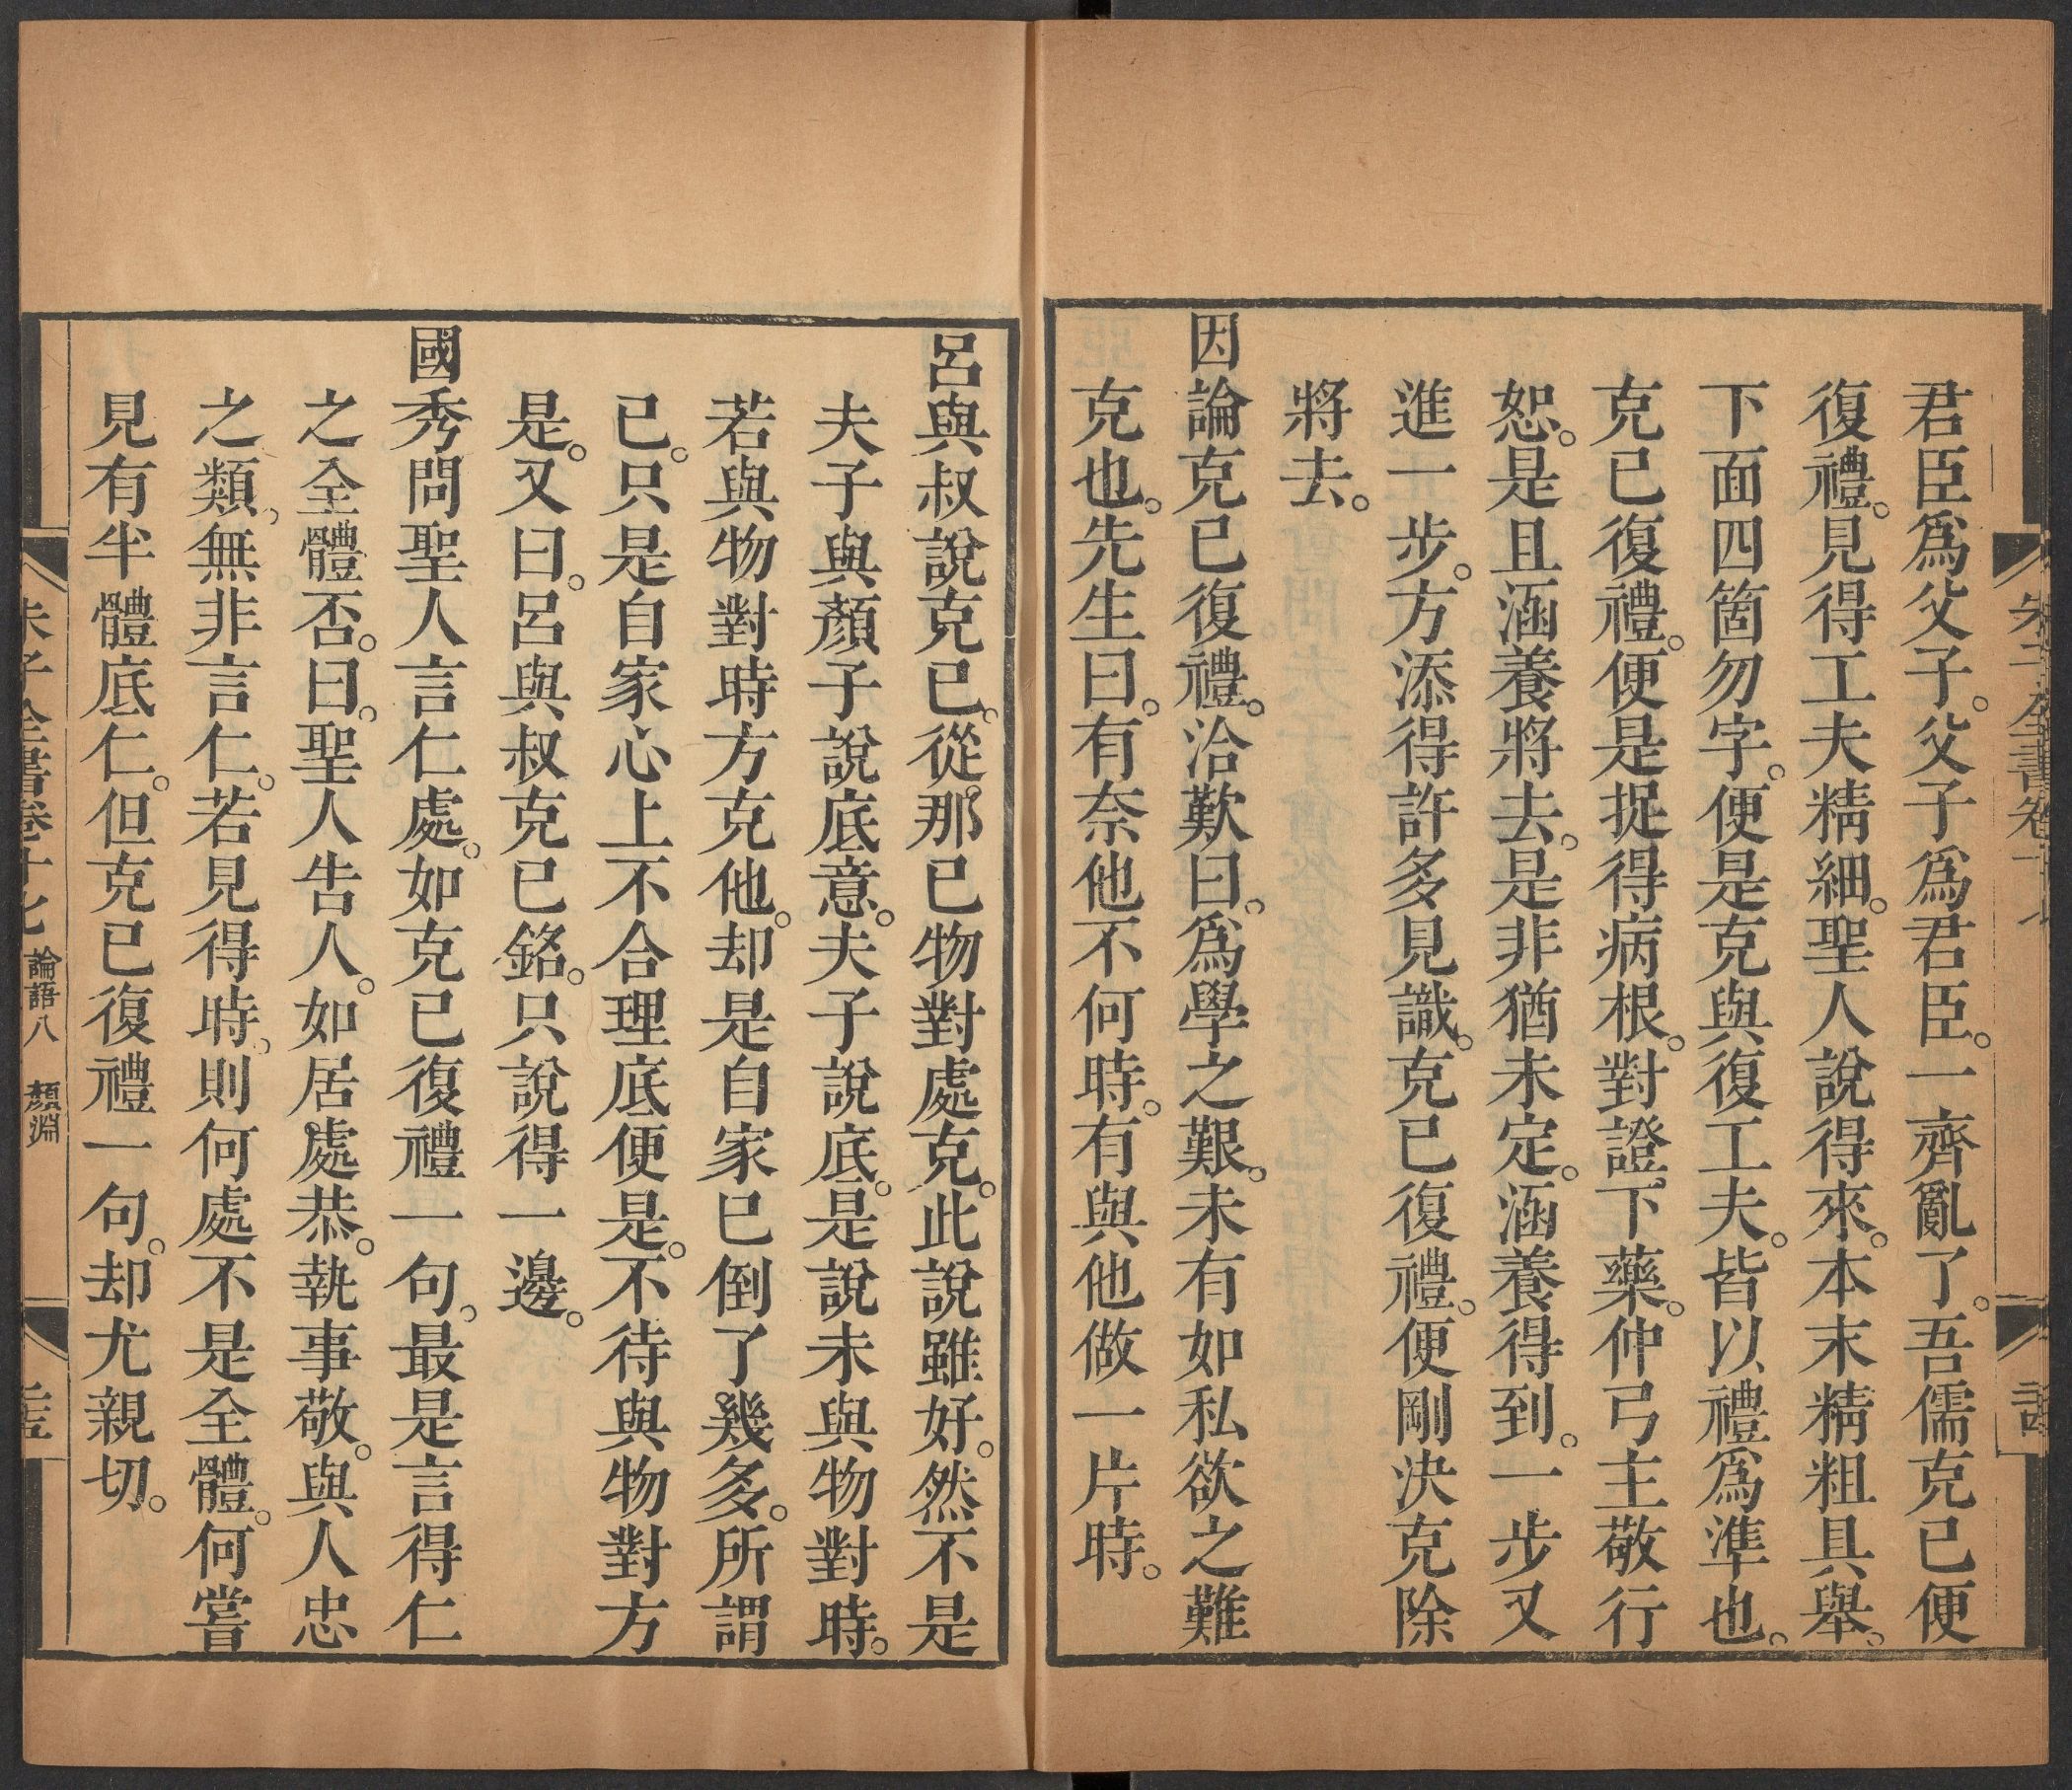 君臣爲父子。父子爲君臣。一齊亂了。吾儒克已便
復禮。見得工夫精細。聖人說得來。本末精粗具舉。
下面四箇勿字。便是克與復工夫。皆以禮爲準也。
克已復禮。便是捉得病根。對證下藥。仲弓主敬行
恕。是且涵養將去。是非猶未定。涵養得到。一步又
進一步。方添得許多見識。克已復禮。便剛決克除
將去。
因論克已復禮。洽歎曰。爲學之艱。未有如私欲之難
克也。先生曰。有奈他不何時。有與他做一片時。
呂與叔說克已。從那已物對處克。此說雖好。然不是
夫子與顏子說底意。夫子說底。是說未與物對時。
若與物對時方克他。却是自家已倒了幾多。所謂
已。只是自家心上不合理底便是。不待與物對方
是。又曰。呂與叔克已銘。只說得一邊。
國秀問聖人言仁處。如克已復禮一句。最是言得仁
之全體否。曰。聖人告人。如居處恭。執事敬。與人忠
之類。無非言仁。若見得時。則何處不是全體。何嘗
見有半體底仁。但克已復禮一句。却尤親切。
朱子全書卷十七 論語八 顏淵